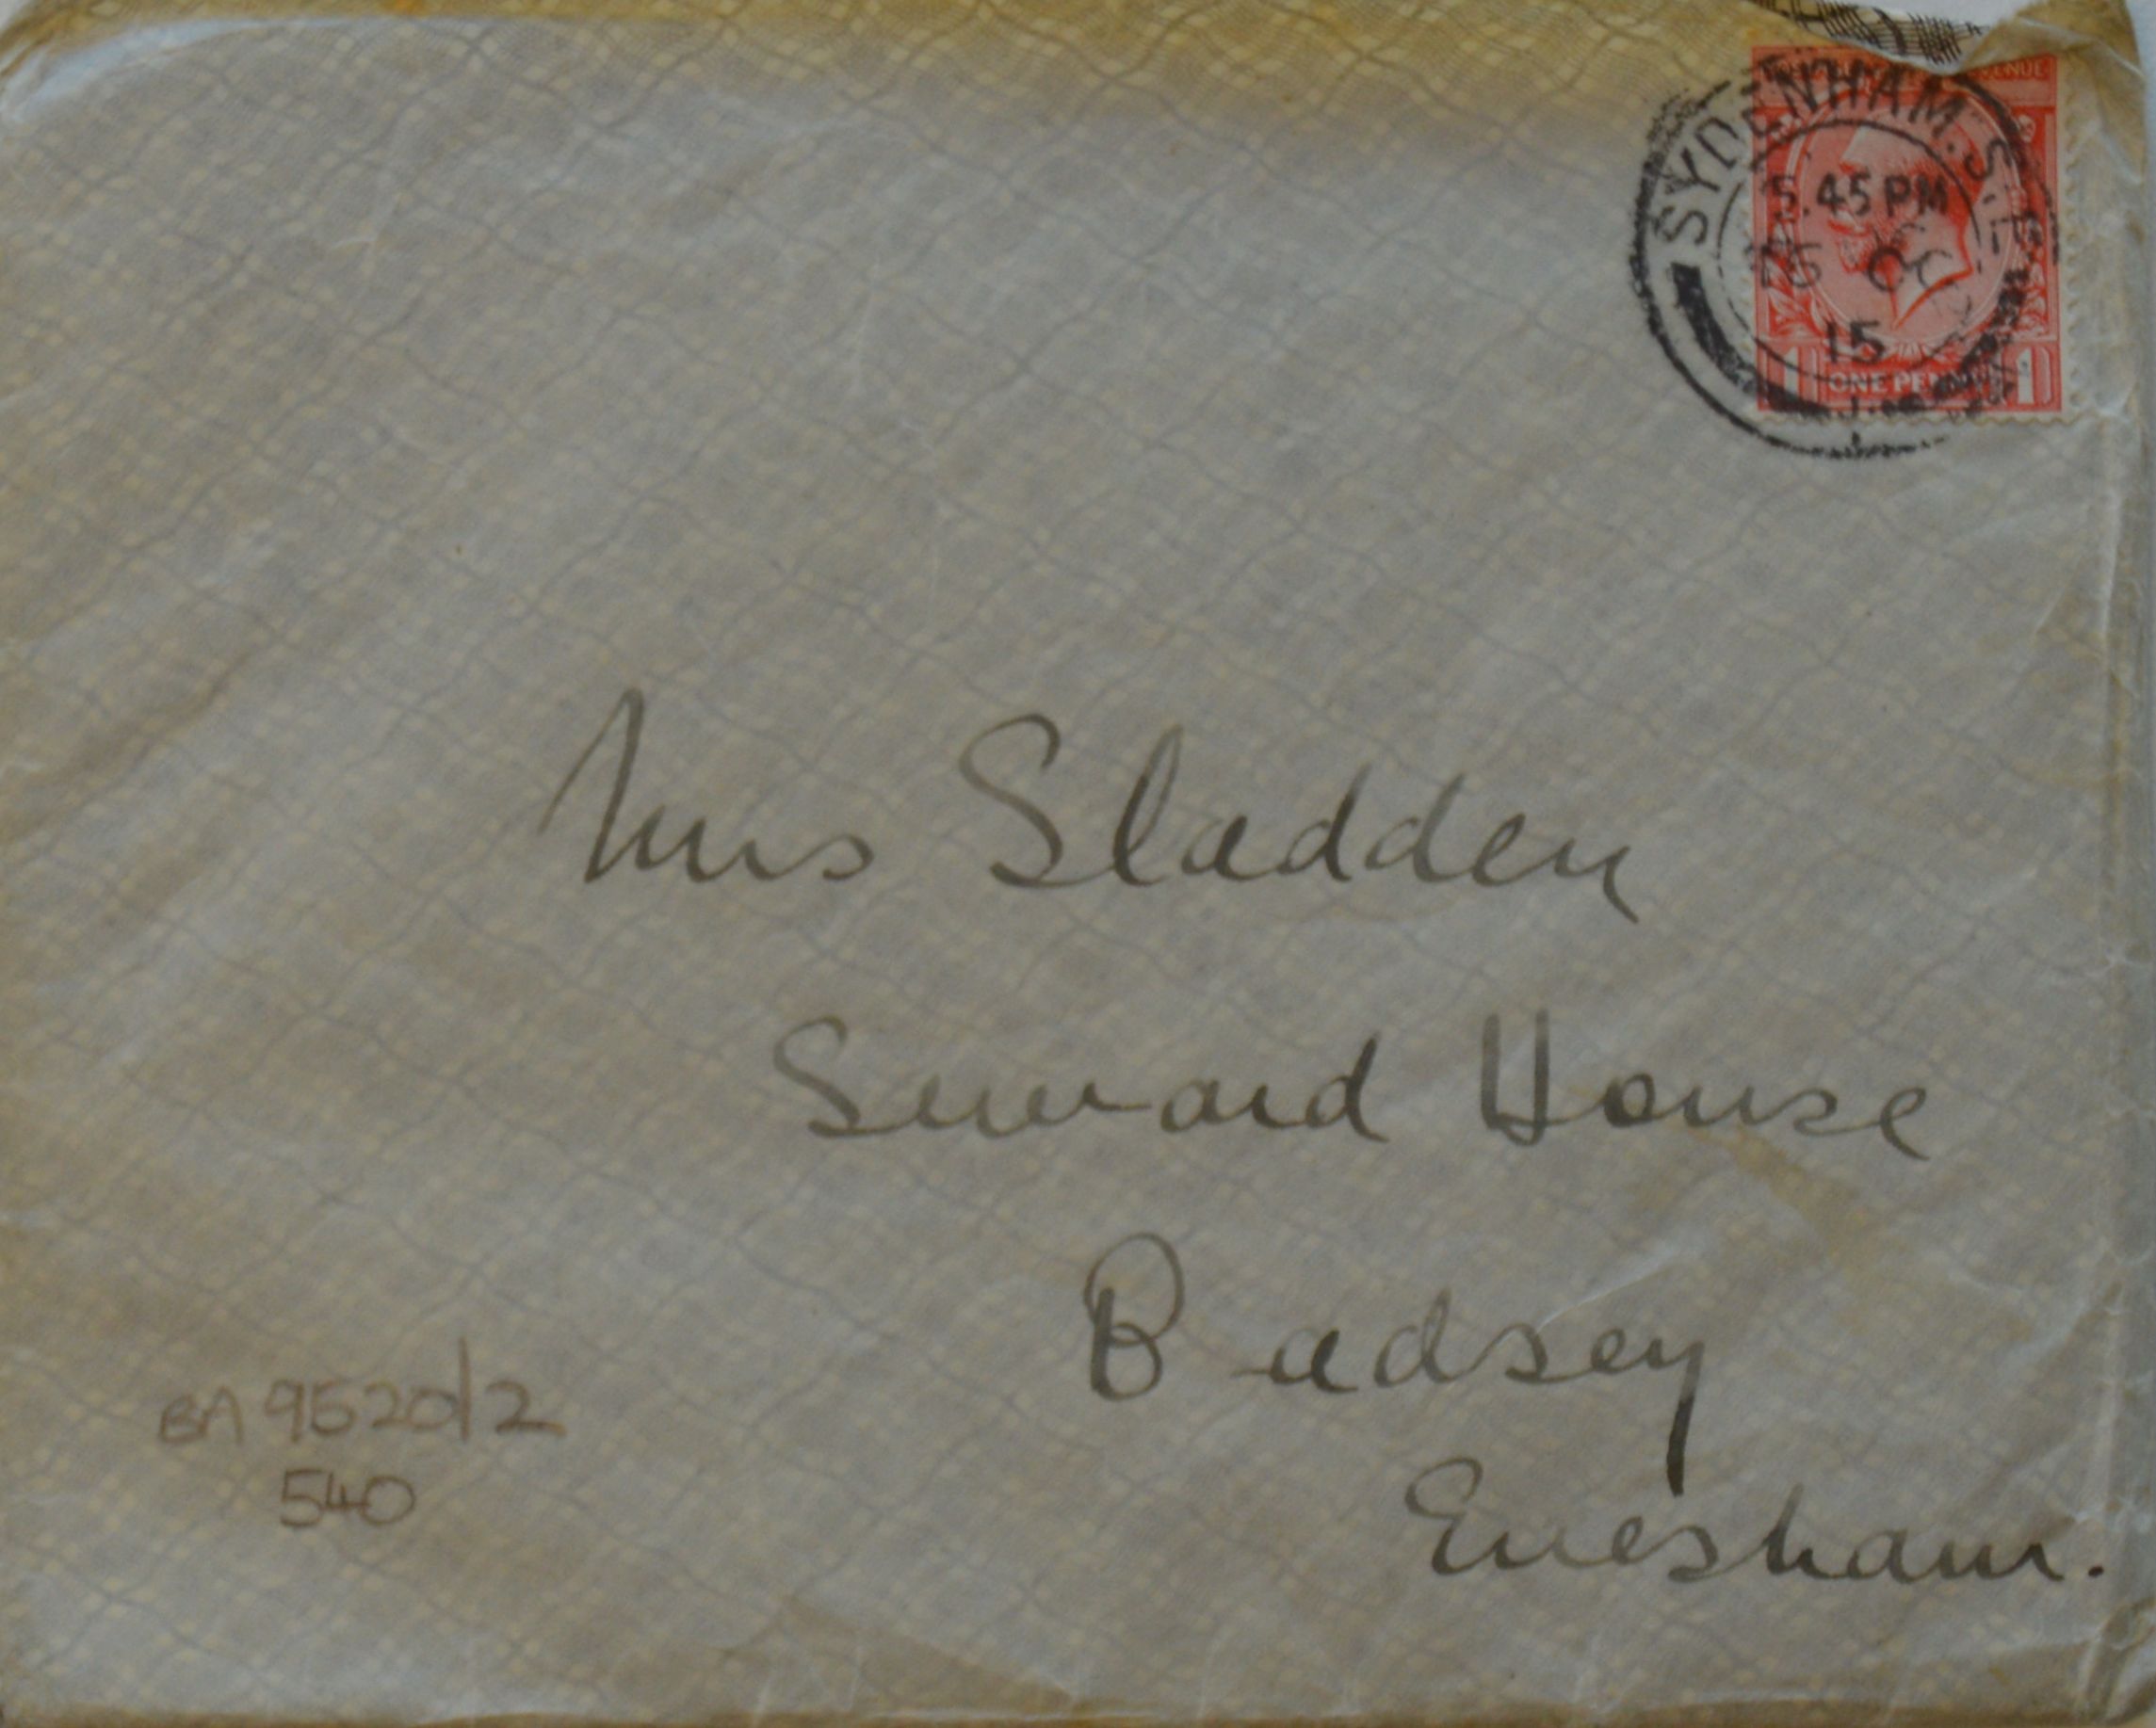 SYDENHAM.S.E.
5.45 PM
OC
15
ONE PENNY
1 1
Mrs Sladden
Seward House
Badsey
Evesham.
BA 9520/2
540